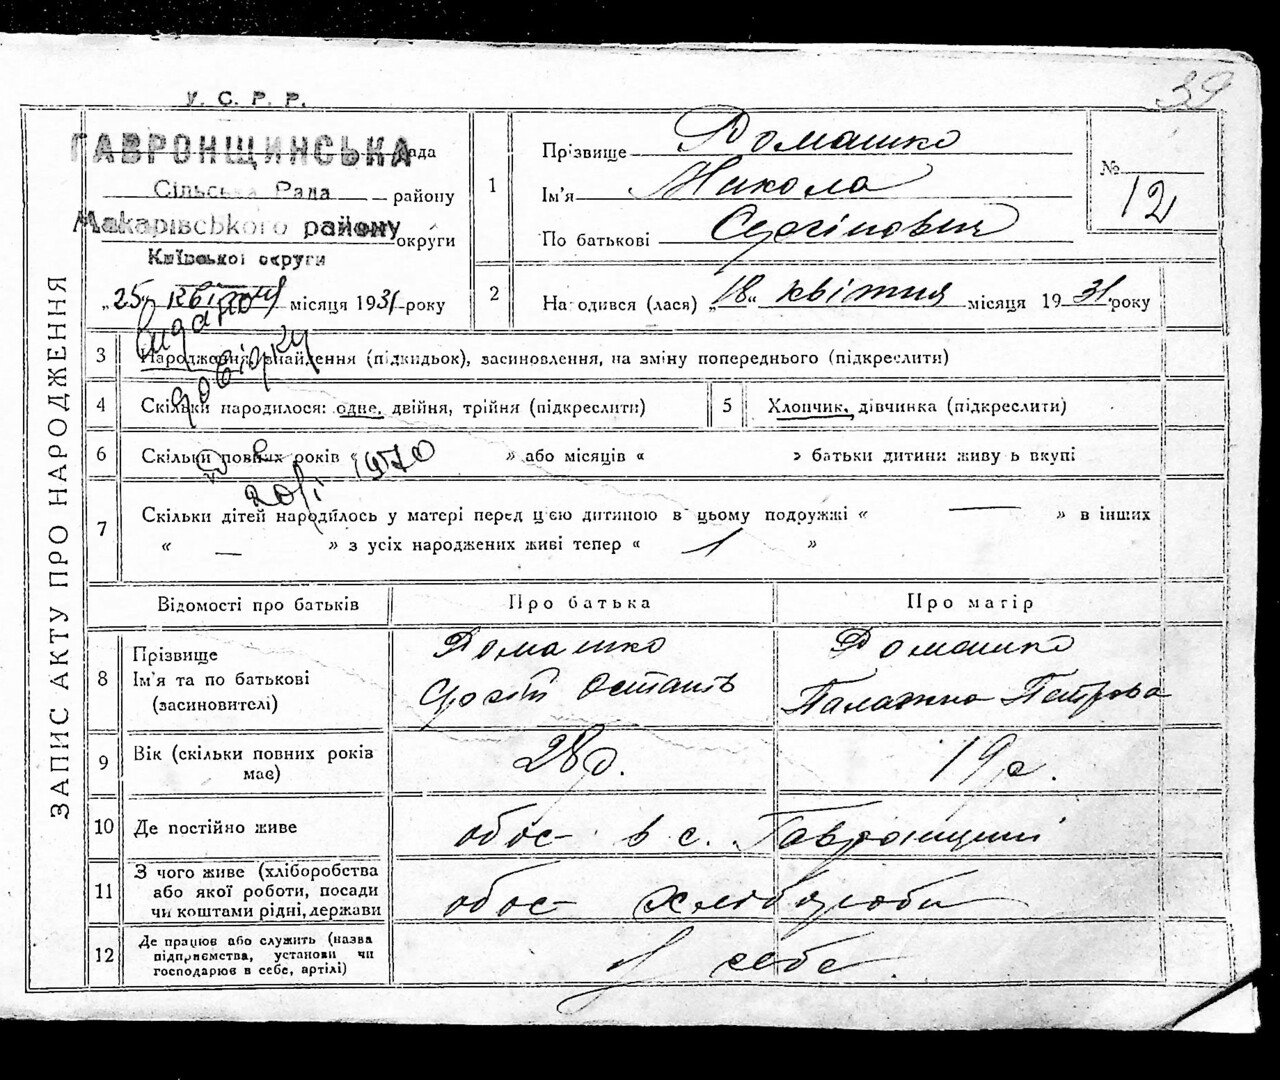 39
У. С. Р. Р.
ГАВРОНЩИНСЬКА рада
Сільська Рада району
Макарівського району округи
Київської округи
„25" квітня місяця 1931 року
видано
довідку
20/І 1970
1
Прізвище Ромашко
Ім'я Микола
По батькові Сергійович
№ 12
2
На одився (лася) „18" квітня місяця 1931 року
3 Народження, знайдення (підкидьок), засиновлення, на зміну попереднього (підкреслити)
4 Скільки народилося: одне, двійня, трійня (підкреслити)
5 Хлопчик, дівчинка (підкреслити)
6 Скільки повних років « » або місяців « » батьки дитини живу ь вкупі
7 Скільки дітей народилось у матері перед цією дитиною в цьому подружжі « — » в інших
« — » з усіх народжених живі тепер « 1 »
ЗАПИС АКТУ ПРО НАРОДЖЕННЯ
Відомості про батьків Про батька Про матір
8 Прізвище
Ім'я та по батькові
(засиновителі)
Ромашко
Остапів
Ромашко
Палажка Петрова
9 Вік (скільки повних років
має)
28 р. 19 р.
10 Де постійно живе
обоє в с. Гавронщині
11 З чого живе (хліборобства
або якої роботи, посади
чи коштами рідні, держави
обоє хлібороби
12 Де працює або служить (назва
підприємства, установи чи
господарює в себе, артілі)
у себе